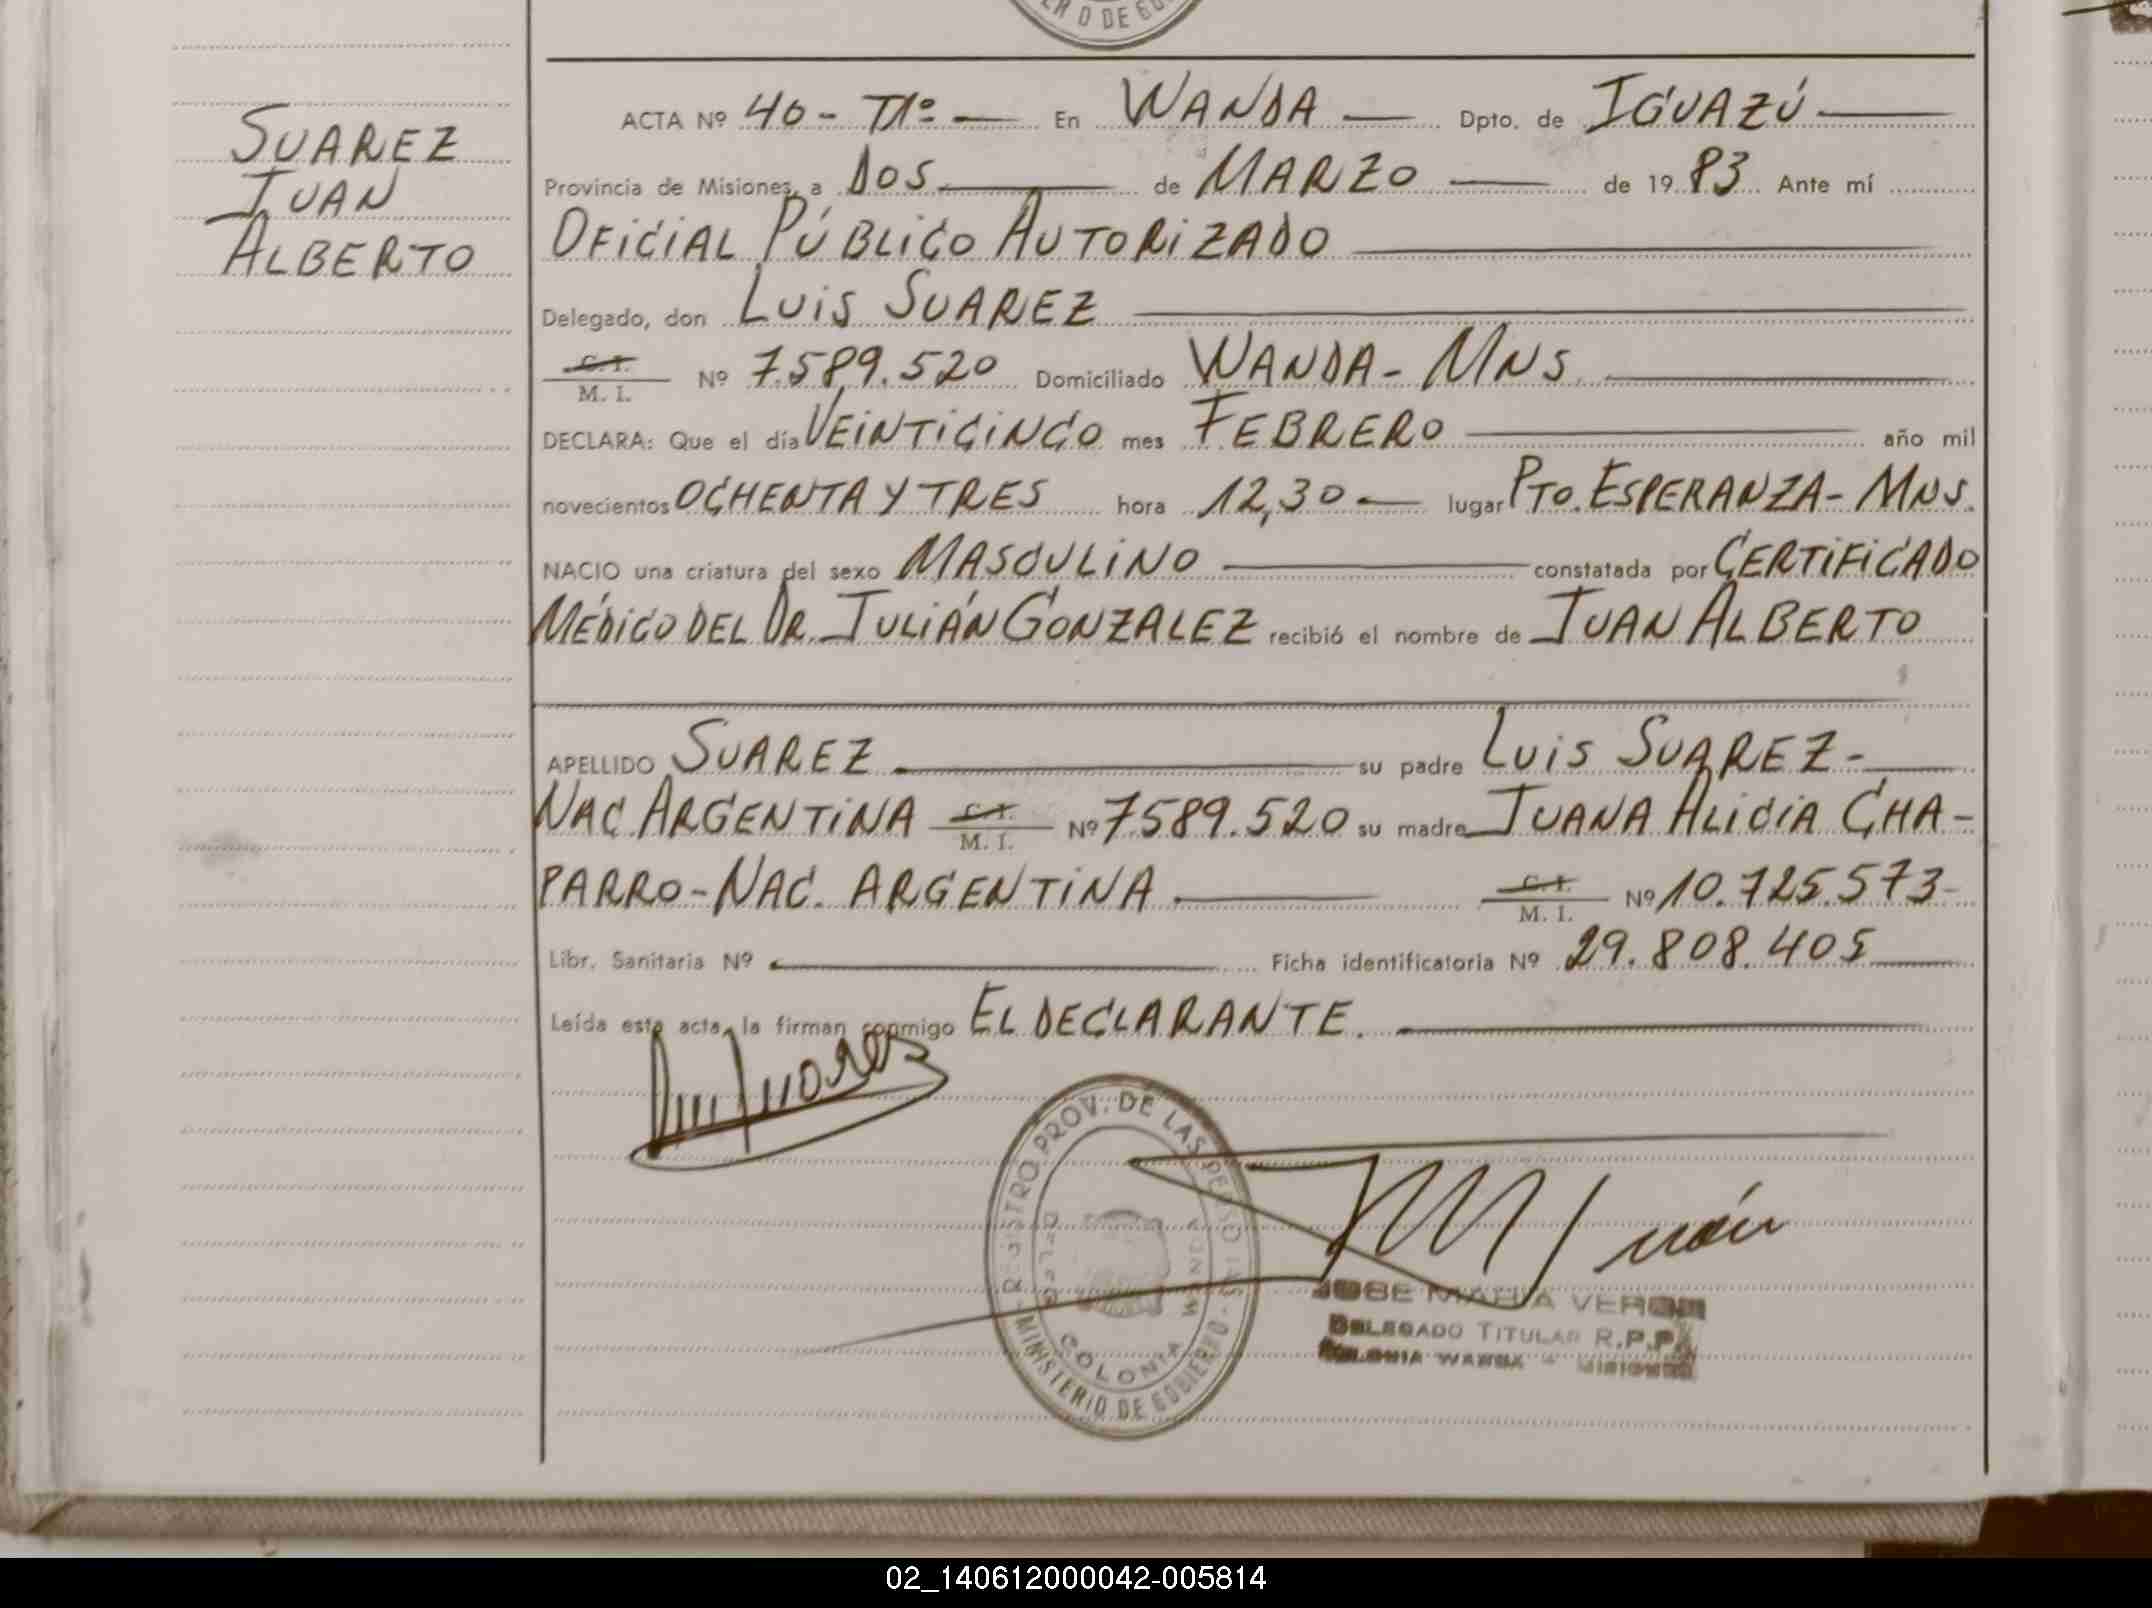 ER O DE GO
SUAREZ
JUAN
ALBERTO
ACTA Nº 40 - Tº 1º — En WANDA — Dpto. de IGUAZÚ
Provincia de Misiones, a DOS de MARZO de 19 83 Ante mí
OFICIAL PÚBLICO AUTORIZADO
Delegado, don LUIS SUAREZ
C. I.
M. I. Nº 7.589.520 Domiciliado WANDA - MNS
DECLARA: Que el día VEINTICINCO mes FEBRERO año mil
novecientos OCHENTA Y TRES hora 12,30 — lugar PTO. ESPERANZA - MNS.
NACIO una criatura del sexo MASCULINO constatada por CERTIFICADO
MÉDICO DEL DR. JULIÁN GONZALEZ recibió el nombre de JUAN ALBERTO
APELLIDO SUAREZ su padre LUIS SUAREZ -
NAC. ARGENTINA C. I. M. I. Nº 7.589.520 su madre JUANA ALICIA CHA-
PARRO - NAC. ARGENTINA C. I. M. I. Nº 10.725.573 -
Libr. Sanitaria Nº Ficha identificatoria Nº 29.808.405
Leída esta acta, la firman conmigo EL DECLARANTE.
Luis Suarez
REGISTRO PROV. DE LAS PERSONAS - MINISTERIO DE GOBIERNO -
COLONIA WANDA
JOSE MARIA VERON
DELEGADO TITULAR R.P.P.
COLONIA WANDA - MISIONES
02_140612000042-005814